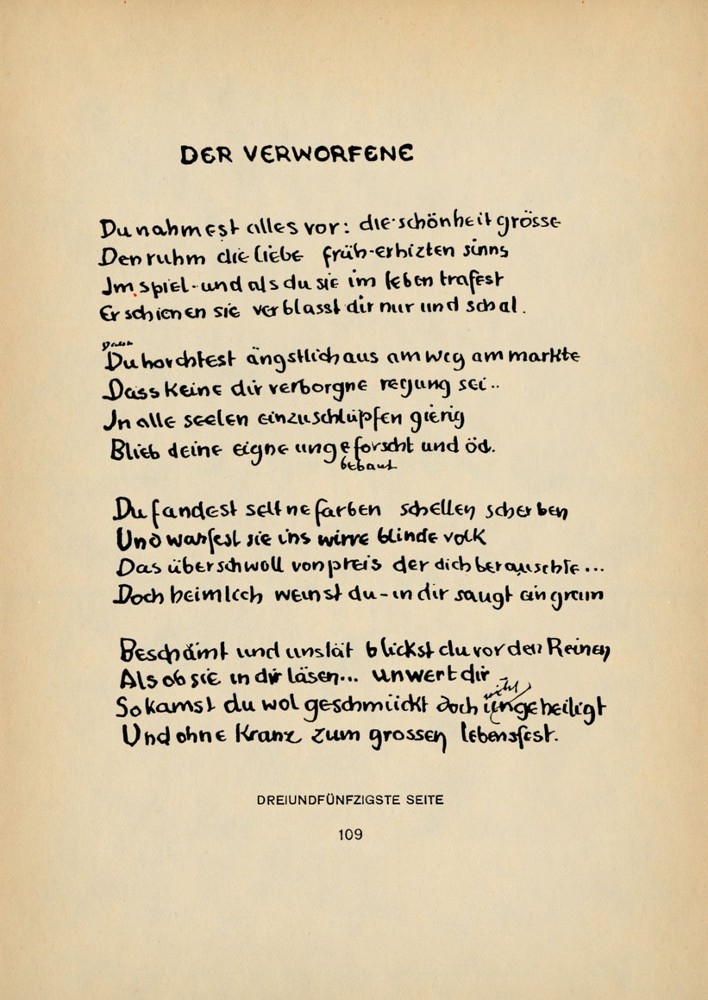 DER VERWORFENE
Du nahmest alles vor: die schönheit grösse
Den ruhm die liebe früh-erhizten sinns
Im spiel - und als du sie im leben trafest
Erschienen sie verblasst dir nur und schal.
Du horchtest ängstlich aus am weg am markte
Dass keine dir verborgne regung sei..
In alle seelen einzuschlüpfen gierig
Blieb deine eigne ungeforscht und öd.
bebaut
Du fandest seltne farben schellen scherben
Und warfest sie ins wirre blinde volk
Das überschwoll von preis der dich berauschte...
Doch heimlich weinst du - in dir saugt ein gram
Beschämt und unstät blickst du vor den Reinen
Als ob sie in dir läsen... unwert dir
nicht
So kamst du wol geschmückt doch ungeheiligt
Und ohne kranz zum grossen lebensfest.
DREIUNDFÜNFZIGSTE SEITE
109